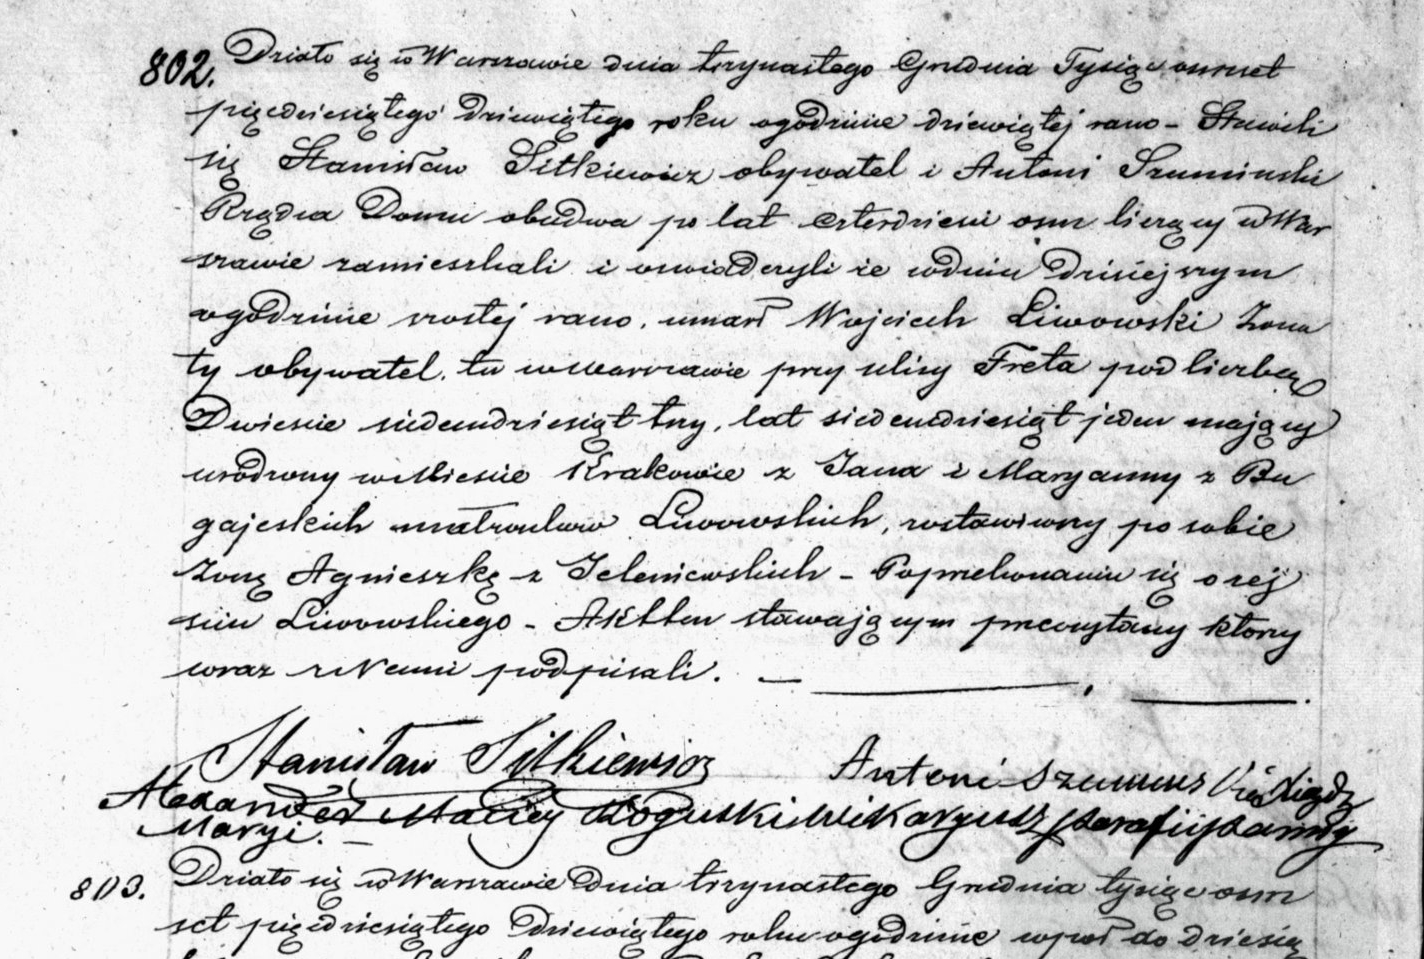 802. Działo się w Warszawie dnia trzynastego Grudnia Tysiąc osmset
pięcdziesiątego dziewiątego roku ogodzinie dziewiątej rano – Stawili
się Stanisław Sitkiewicz obywatel i Antoni Szuminski
Rządca Domu obudwa po lat czterdzieści osm liczący w War
szawie zamieszkali i oswiadczyli że wdniu Dzisiejszym
ogodzinie szostej rano, umarł Woyciech Liwowski Żona
ty obywatel, tu w Warszawie przy ulicy Freta pod liczbą
Dwieście siedemdziesiąt trzy, lat siedemdziesiąt jeden mający
urodzony w Mieście Krakowie z Jana i Maryanny z Bu
gajeskich małzonkow Liwowskich, zostawiwszy po sobie
żonę Agnieszkę z Jeleniewskich – Poprzekonaniu się o zej
ściu Liwowskiego – Akt ten stawającym przeczytany ktory
wraz z Nami podpisali. —
Stanisław Sitkiewicz Antoni Szumins
Alexander Maciej Roguski Wikaryusz parafii panny
Maryi. –
803. Działo się w Warszawie Dnia trzynastego Grudnia tysiąc osm
set pięcdziesiątego Dziewiątego roku ogodzinie wpoł do Dziesią